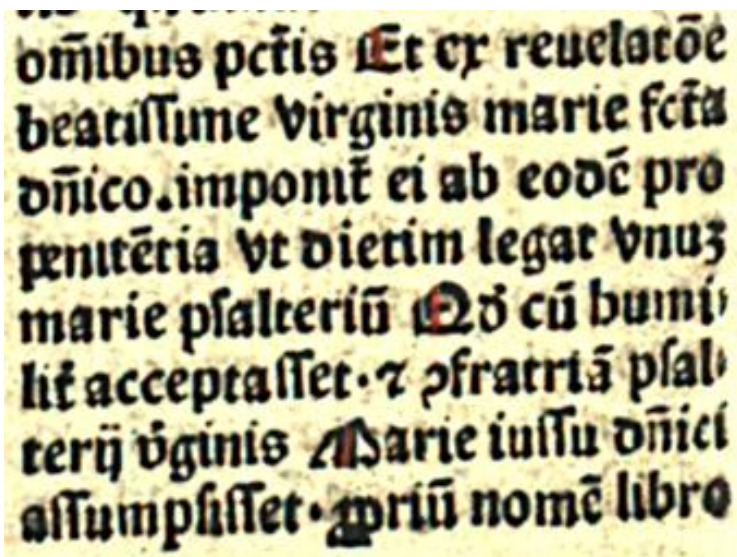 om̄ibus pct̄is Et ex reuelatōe
beatiſſime virginis marie fct̄a
dn̄ico.imponit̄ ei ab eodē pro
penitētia vt dietim legat vnuꝫ
marie pſalteriū Qd̓ cū humi
lit̄ acceptaſſet·⁊ ꝯfratriā pſal
terij v̓ginis Marie iuſſu dn̄ici
aſſumpſiſſet· ꝓpriū nomē libro